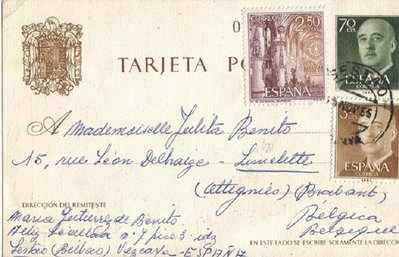 0
TARJETA PO
CORREOS 2,50
ESPAÑA
70
CTS
ESPAÑA
CORREOS
ESPAÑA
CORREOS
A Mademoiselle Julita Benito
15, rue Léon Delhaize - Limelette
(Ottignies) Brabant,
Bélgica
Belgique
DIRECCIÓN DEL REMITENTE
Maria Gutierrez de Benito
nº 7 piso 3 - idq
Sestao (Bilbao) Vizcaya - ESPAÑA
EN ESTE LADO SE ESCRIBE SOLAMENTE LA DIRECCIÓN